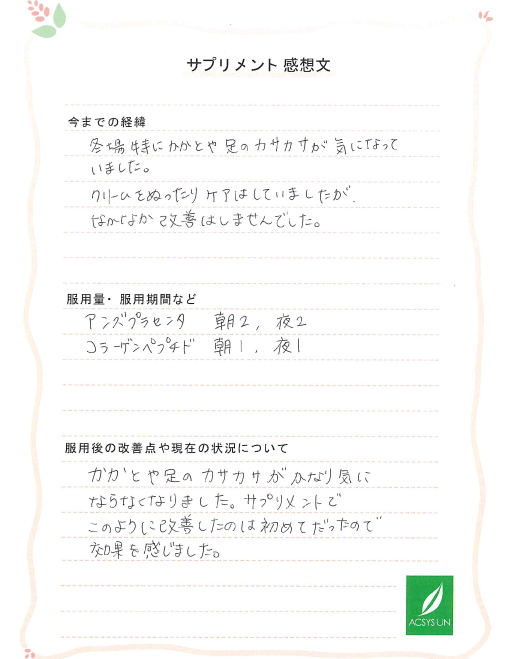 サプリメント 感想文
今までの経緯
冬場 特に かかとや 足の カサカサが 気になって
いました。
クリームをぬったり ケアはしていましたが、
なかなか 改善はしませんでした。
服用量・服用期間など
アンズプラセンタ 朝2, 夜2
コラーゲンペプチド 朝1, 夜1
服用後の改善点や現在の状況について
かかとや足の カサカサが かなり 気に
ならなくなりました。サプリメントで
このように改善したのは初めてだったので
効果を感じました。
ACSYS UN